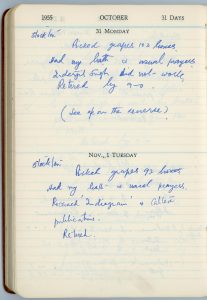 1955 OCTOBER 31 DAYS
31 MONDAY
Stockton
Picked grapes 102 boxes
had my bath & usual prayers
Inderjit Singh did not work,
Retired by 9-0
(See up on the reverse)
NOV., 1 TUESDAY
Stockton
Picked grapes 92 boxes
had my bath & usual prayers,
Received & other
publications.
Retired.